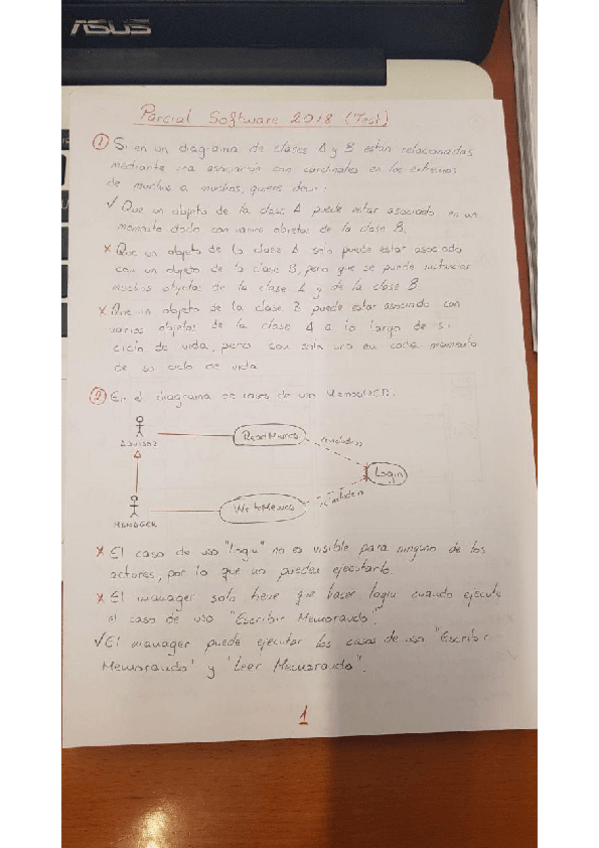 ASUS
Parcial Software 2018 (Test)
1 Si en un diagrama de clases A y B están relacionadas
mediante una asociación con cardinales en los extremos
de muchos a muchos, quiere decir:
✓ Que un objeto de la clase A puede estar asociado en un
momento dado con varios objetos de la clase B.
x Que un objeto de la clase A solo puede estar asociado
con un objeto de la clase B, pero que se puede instanciar
muchos objetos de la clase A y de la clase B.
x Que un objeto de la clase B puede estar asociado con
varios objetos de la clase A a lo largo de su
ciclo de vida, pero con solo uno en cada momento
de su ciclo de vida
2 En el diagrama de casos de uso
ReadMemos
include
Login
WriteMemos
include
MANAGER
x El caso de uso "login" no es visible para ninguno de los
actores, por lo que no pueden ejecutarlo.
x El manager solo tiene que hacer login cuando ejecute
el caso de uso "Escribir Memorando".
✓ El manager puede ejecutar los casos de uso "Escribir
Memorando" y "Leer Memorando".
1